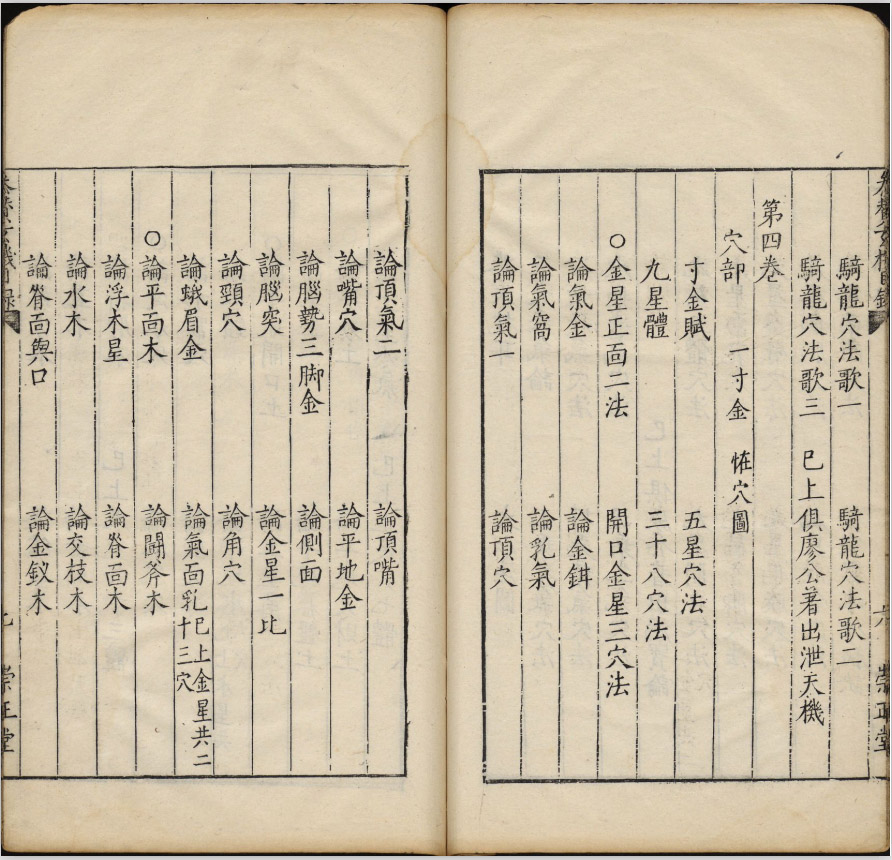 騎龍穴法歌一 騎龍穴法歌二
騎龍穴法歌三 已上俱廖公著出泄天機
第四卷
穴部 一寸金 恠穴圖
寸金賦 五星穴法
九星體 三十八穴法
○金星正面二法 開口金星三穴法
論氣金 論金鉡
論氣窩 論乳氣
論頂氣一 論頂穴
論頂氣二 論頂嘴
論嘴穴 論平地金
論腦勢三脚金 論側面
論腦突 論金星一比
論頸穴 論角穴
論蛾眉金 論氣面乳 已上金星共二十三穴
○論平面木 論鬭斧木
論浮木星 論脊面木
論水木 論交枝木
論脊面與口 論金釵木
崇正堂
崇正堂